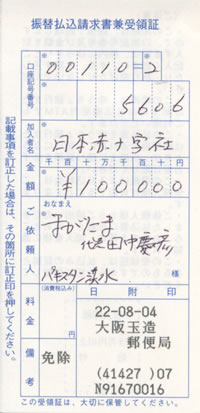 振替払込請求書兼受領証
口座記号番号
00110=2
5606
加入者名
日本赤十字社
金額
千 百 十 万 千 百 十 円
¥100000
ご依頼人
おなまえ
まがたま
代 田中慶彦
パキスタン洪水
様
料金
(消費税込み)
円
日 附 印
22-08-04
大阪玉造
郵便局
備考
免除
(41427)07
N91670016
記載事項を訂正した場合は、その箇所に訂正印を押してください。
この受領証は、大切に保管してください。